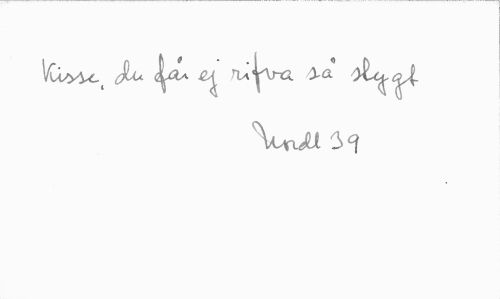 Kisse, du får ej rifva så stygt
Nordl 39